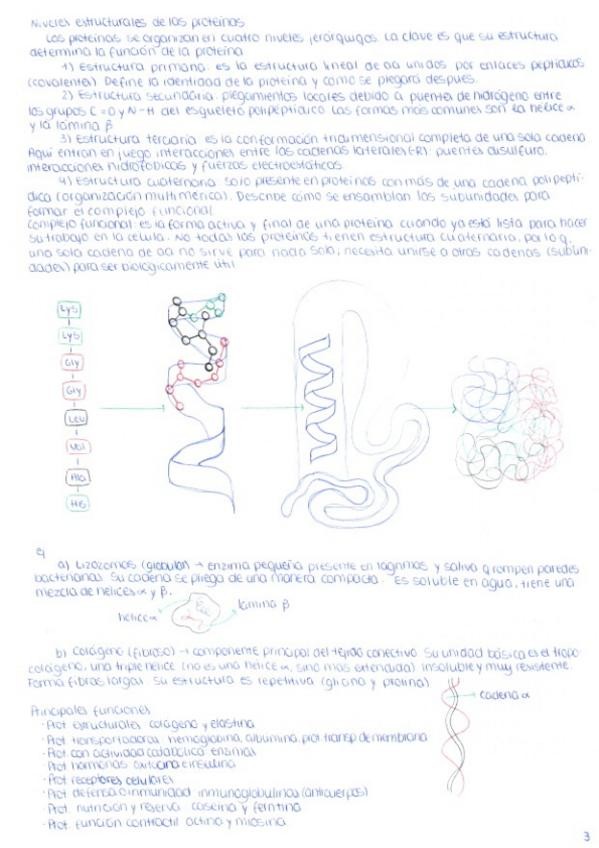 Niveles estructurales de las proteínas
Las proteínas se organizan en cuatro niveles jerárquigos. La clave es que su estructura
determina la función de la proteína
1) Estructura primaria: es la estructura lineal de aa unidos por enlaces peptídicos
(covalente). Define la identidad de la proteína y como se plegará después.
2) Estructura secundaria: plegamientos locales debido a puentes de hidrógeno entre
los grupos C=O y N-H del esqueleto polipeptídico. Las formas más comunes son la hélice α
y la lámina β
3) Estructura terciaria: es la conformación tridimensional completa de una sola cadena
Aquí entran en juego interacciones entre las cadenas laterales (R): puentes disulfuro,
interacciones hidrofóbicas y fuerzas electroestáticas.
4) Estructura cuaternaria: solo presente en proteínas con más de una cadena polipeptí-
dica (organización multimérica). Describe cómo se ensamblan las subunidades para
formar el complejo funcional.
Complejo funcional: es la forma activa y final de una proteína cuando ya está lista para hacer
su trabajo en la célula. No todas las proteínas tienen estructura cuaternaria, por lo q
una sola cadena de aa no sirve para nada sola, necesita unirse a otras cadenas (subuni-
dades) para ser biológicamente útil
Lys
Lys
Gly
Gly
Leu
Val
Ala
His
a) Lizozomas (globular) → enzima pequeña presente en lágrimas y saliva q rompen paredes
bacterianas. Su cadena se pliega de una manera compacta. Es soluble en agua, tiene una
mezcla de hélices α y β.
hélice α
lámina β
b) Colágeno (fibroso) → componente principal del tejido conectivo. Su unidad básica es el tropo-
colágeno, una triple hélice (no es una hélice α, sino más extendida) insoluble y muy resistente.
Forma fibras largas. Su estructura es repetitiva (glicina y prolina)
cadena α
Principales funciones
· Prot estructurales: colágeno y elastina
· Prot transportadoras: hemoglobina, albúmina, prot transp de membrana
· Prot con actividad catabólica: enzimas
· Prot hormonas: oxitocina e insulina
· Prot receptores celulares
· Prot defensa o inmunidad: inmunoglobulinas (anticuerpos)
· Prot nutrición y reserva: caseína y ferritina
· Prot función contráctil: actina y miosina
3